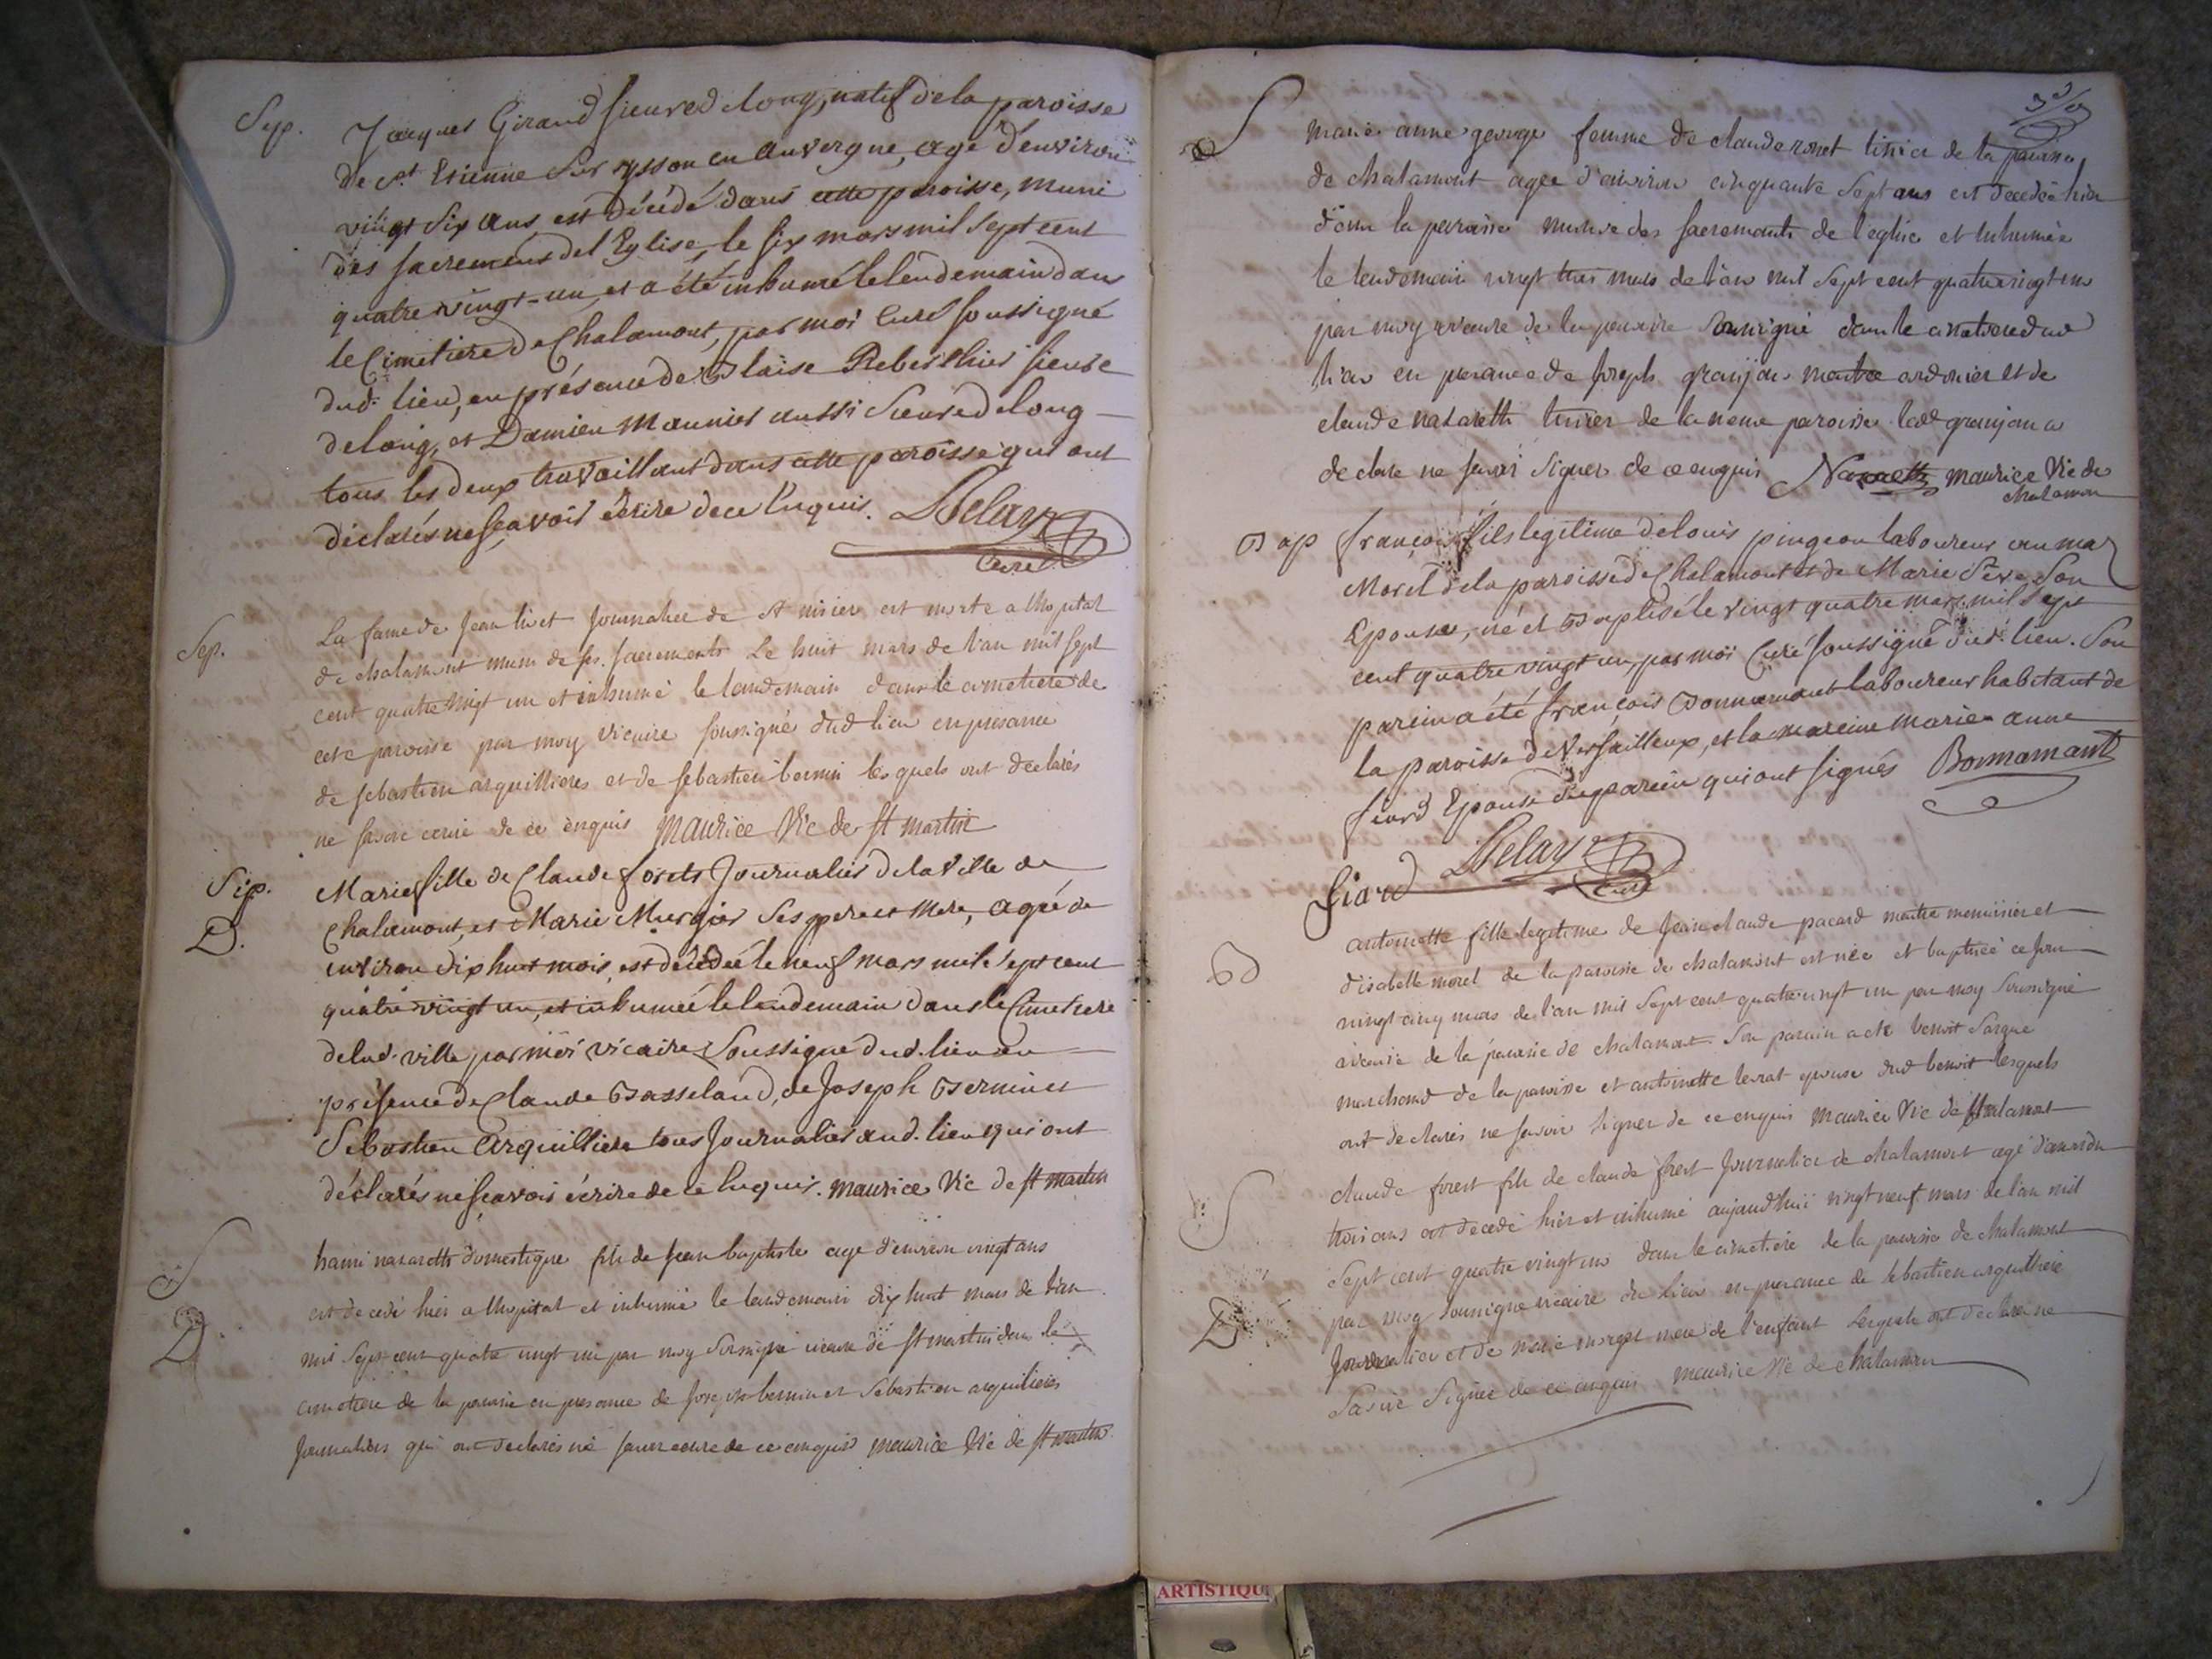 Sep.
Jacques Giraud sieure de long, natif de la paroisse
de st Etienne sur usson en auvergne, agé d'environ
vingt six ans est décédé dans cette paroisse, muni
des sacremens de l'Eglise, le six mars mil sept cent
quatre vingt-un, et a été inhumé le lendemain dans
le Cimetiere de Chalamont, par moi Curé soussigné
dud. lieu, en présence de Blaise Reberthier sieure
de long, et Damien Mounier aussi sieure de long
tous les deux travaillant dans cette paroisse qui ont
déclarés ne sçavoir écrire de ce Enquis. Delay
Curé
Sep.
La fame de Jean livet Journalier de st nisier est morte a lhopital
de chalamont muni de ses sacrements Le huit mars de l'an mil sept
cent quatre vingt un et inhumé le landemain dans le cimetiere de
cete paroisse par moy vicaire soussigné dud lieu en presance
de sebastien arquillieres et de sebastien bernin lesquels ont declarés
ne savoir ecrire de ce enquis maurice Vic de st martin
Sep.
D.
Marie fille de Claude forets Journalier de la Ville de
Chalamont, et Marie Murgier ses pere et Mere, agée de
environ dix huit mois, est décédée le neuf mars mil sept cent
quatre vingt un, et inhumée le lendemain dans le Cimetiere
de lad. ville par moi vicaire soussigné dud. lieu en
présence de Claude Basseland, de Joseph Bernin et
Sebastien Arquilliere tous Journaliers aud. lieu qui ont
déclarés ne sçavoir écrire de ce Enquis. maurice Vic de st martin
S
D.
nazareth domestique fils de Jean baptiste age d'environ vingt ans
est decedé hier a lhopital et inhumé le landemain dix huit mars de l'an
mil sept cent quatre vingt un par moy soussigné vicaire de st martin dans le
cimetiere de la paroisse en presance de Joseph bernin et sebastien arquilieres
Journaliers qui ont declarés ne savoir ecrire de ce enquis maurice Vic de st martin
S
marie anne george femme de claude ronet tissier de la paroisse
de chalamont agee d'environ cinquante sept ans est decedée hier
dans la paroisse munie des sacremants de l'eglise et inhumée
le lendemain vingt trois mars de l'an mil sept cent quatre vingt un
par moy vicaire de la paroisse soussigné dans le cimetiere dud
lieu en presance de Joseph granjan maitre cordonier et de
claude nazareth tissier de la meme paroisse led granjan a
declare ne savoir signer de ce enquis Nazareth maurice Vic de
chalamon
Bap
françois fils legitime de louis pingeon laboureur au mas
Morel de la paroisse de Chalamont et de Marie Seve son
Epouse, né et Baptisé le vingt quatre mars mil sept
cent quatre vingt un, par moi Curé soussigné dud. lieu. Son
parein a été françois Bonnamant laboureur habitant de
la paroisse de Versailleux, et la mareine marie anne
fiard Epouse du parein qui ont signés Bonnamant
fiard Delay
Curé
B
antoinette fille legitime de Jean claude pacard maitre menuisier et
d'isabelle morel de la paroisse de chalamont est née et baptisée ce jour
vingt cinq mars de l'an mil sept cent quatre vingt un par moy soussigné
vicaire de la paroisse de chalamont. Son parain a ete benoit
marchand de la paroisse et antoinette epouse dud benoit lesquels
ont declarés ne savoir signer de ce enquis maurice Vic de chalamont
S
D
claude forest fils de claude forest Journalier de chalamont agé d'environ
trois ans est decedé hier et inhumé aujourd'huis vingt neuf mars de l'an mil
sept cent quatre vingt un dans le cimetiere de la paroisse de chalamont
par moy soussigné vicaire du lieu en presance de sebastien arquilliere
Journalier et de marie mere de l'enfant lesquels ont declaré ne
savoir signer de ce enquis maurice Vic de chalamon
ARTISTIQU